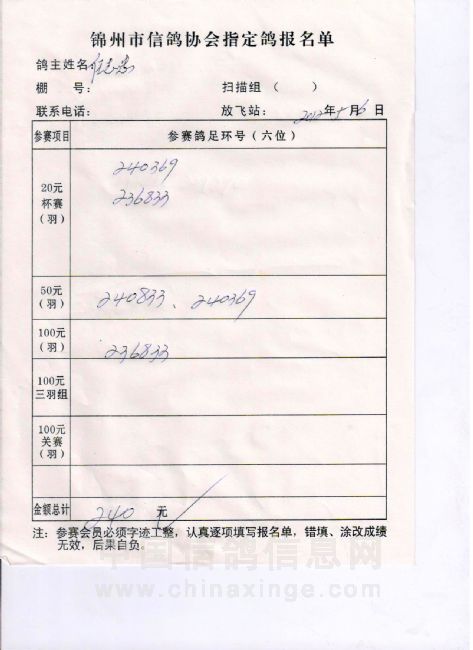 锦州市信鸽协会指定鸽报名单
鸽主姓名:
棚 号:
扫描组 ( )
联系电话:
放飞站: 2012年5月6日
参赛项目 参赛鸽足环号(六位)
20元
杯赛
(羽)
240369
236833
50元
(羽)
240833、240369
100元
(羽)
236833
100元
三羽组
100元
关赛
(羽)
金额总计 240 元
注: 参赛会员必须字迹工整,认真逐项填写报名单,错填、涂改成绩
无效,后果自负
中国信鸽信息网
www.chinaxinge.com